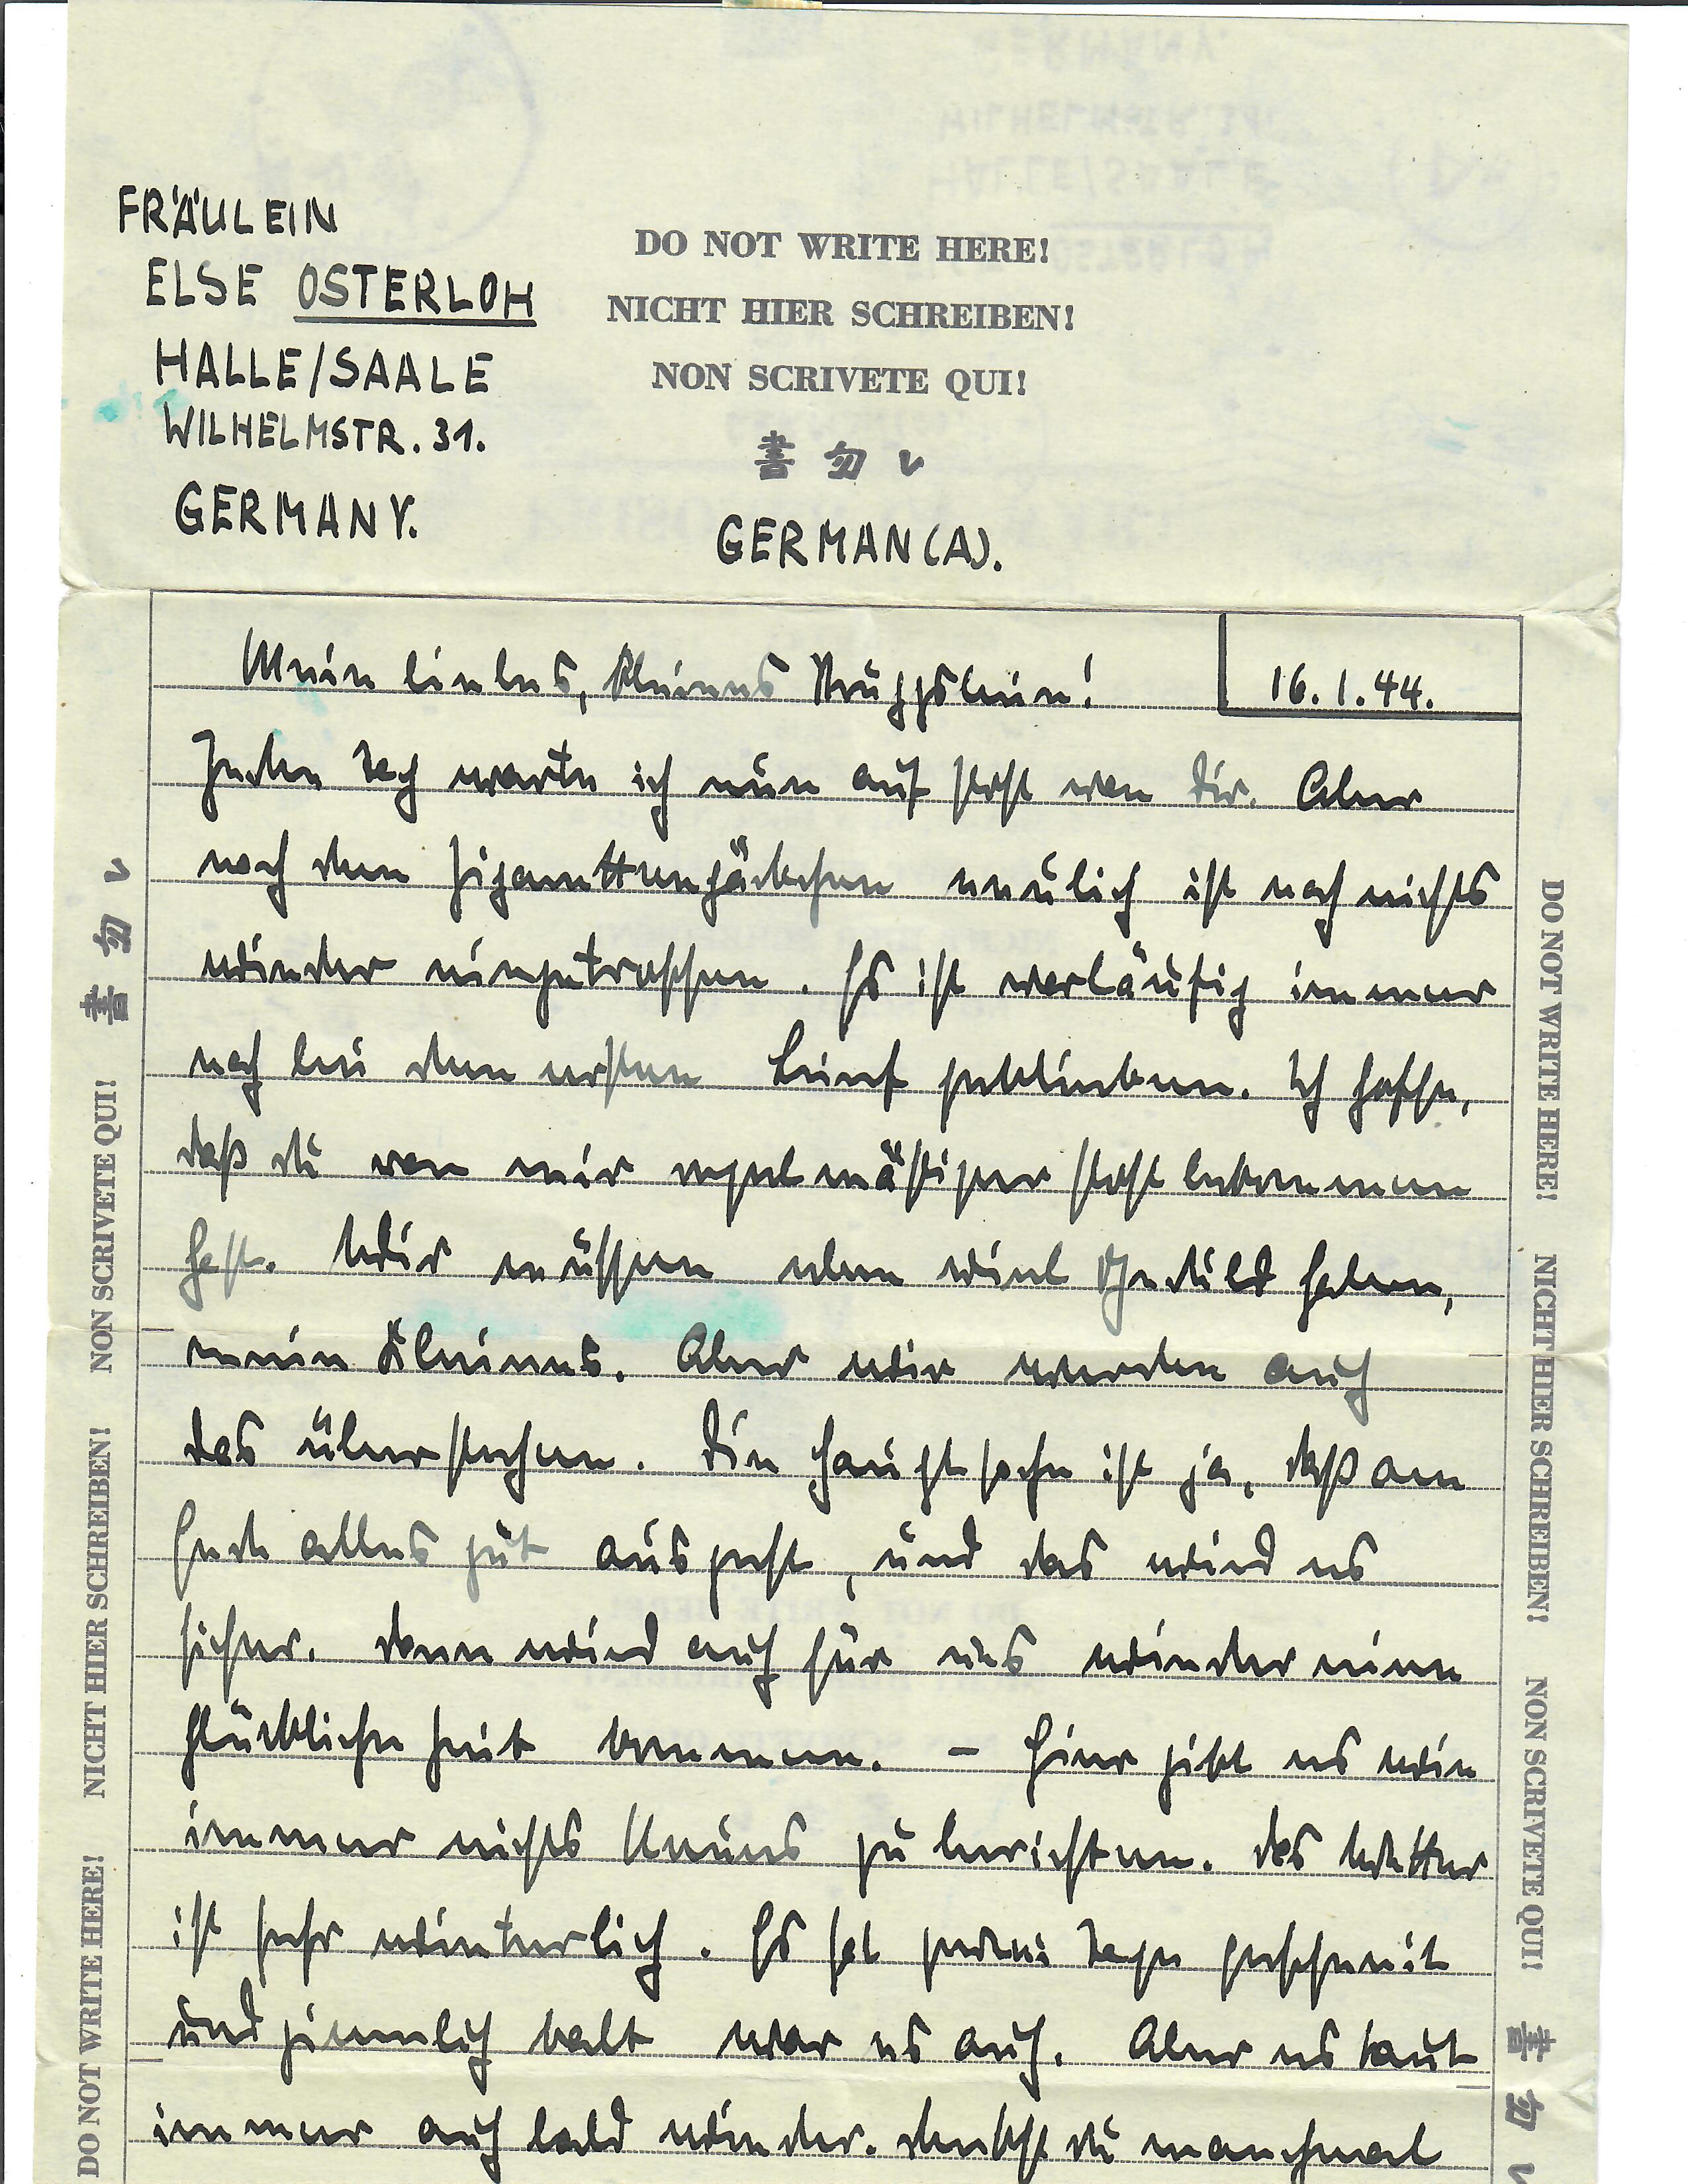 FRÄULEIN
ELSE OSTERLOH
HALLE/SAALE
WILHELMSTR. 31.
GERMANY.
DO NOT WRITE HERE!
NICHT HIER SCHREIBEN!
NON SCRIVETE QUI!
書 勿 レ
GERMAN(A).
16.1.44.
Mein liebes, kleines
Jeden Tag warte ich nun auf Post von Dir. Aber
nach dem Zigarettenpäckchen neulich ist noch nichts
wieder eingetroffen. Es ist vorläufig immer
noch bei dem ersten Brief geblieben. Ich hoffe,
daß du von mir regelmäßiger Post bekommen
hast. Wir müssen eben viel Geduld haben,
mein Kleines. Aber wir werden auch
das überstehen. Die Hauptsache ist ja, daß am
Ende alles gut ausgeht, und das wird es
sicher. Dann wird auch für uns wieder eine
glückliche Zeit kommen. – Hier gibt es wie
immer nichts Neues zu berichten. Das Wetter
ist sehr winterlich. Es hat zwei Tage geschneit
und ziemlich kalt war es auch. Aber es taut
immer auch bald wieder. Denkst du manchmal
DO NOT WRITE HERE! NICHT HIER SCHREIBEN! NON SCRIVETE QUI! 書 勿 レ
DO NOT WRITE HERE! NICHT HIER SCHREIBEN! NON SCRIVETE QUI! 書 勿 レ